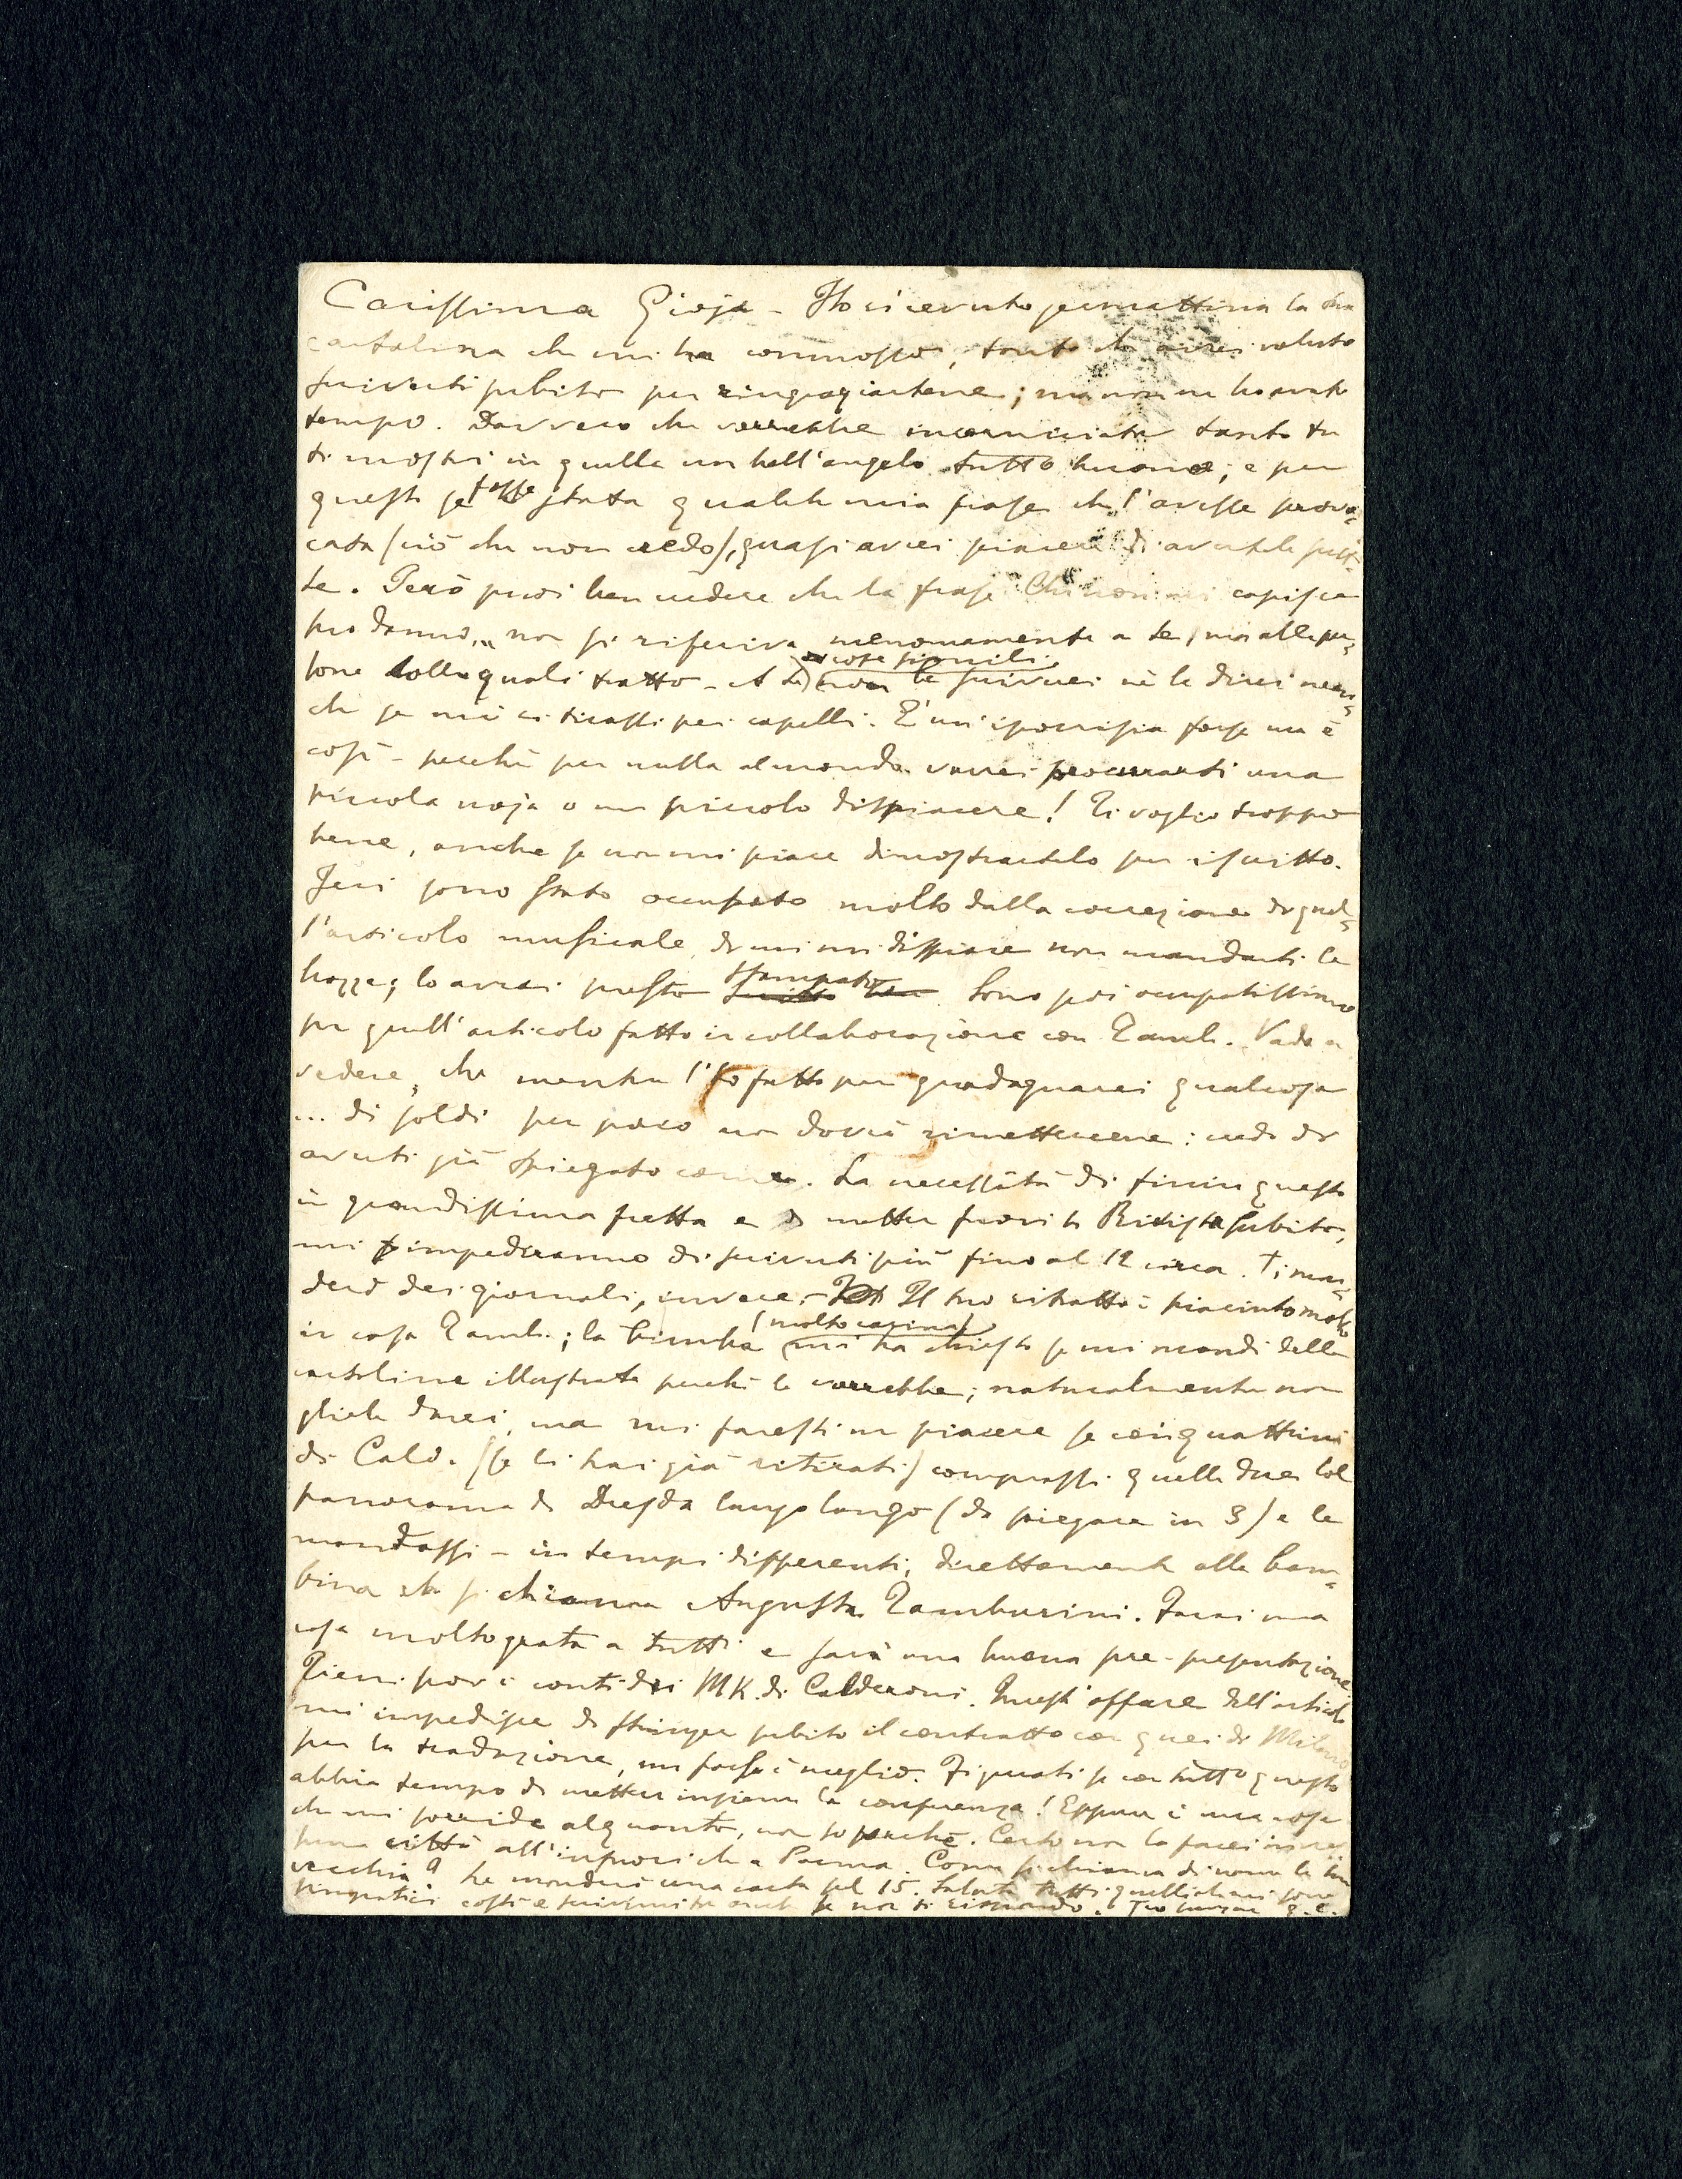 Carissima Gioja - Ho ricevuto jermattina la tua
cartolina che mi ha commosso, tanto che avrei voluto
scriverti subito per ringraziartene; ma non ne ho avuto
tempo. Davvero che verrebbe incorniciata tanto tu
ti mostri in quella un bell'angelo tutto buono; e per
questo se fosse stata qualche mia frase che l'avesse provo=
cata (ciò che non credo), quasi avrei piacere di avertele scrit=
te. Però puoi ben credere che la frase "Chi non mi capisce
suo danno" non si riferiva menomamente a te, ma alle per=
sone colle quali tratto - A te cose simili non le scriverei nè le direi nean=
che se mi ci tirassi pei capelli. È un'ipocrisia forse ma è
così - perchè per nulla al mondo vorrei procurarti una
piccola noja o un piccolo dispiacere! Ti voglio troppo
bene, anche se non mi piace dimostrartelo per iscritto.
Jeri sono stato occupato molto dalla correzione di quel=
l'articolo musicale di cui mi dispiace non mandarti le
bozze; lo avrai presto stampato. Sono poi occupatissimo
per quell'articolo fatto in collaborazione con Zamb. Vado a
vedere, che mentre l'ho fatto per guadagnarci qualcosa
... di soldi per poco non dovrò rimettercene: credo di
averti già spiegato come. La necessità di finir questo
in grandissima fretta e di metter fuori la Rivista subito,
mi impediranno di scriverti più fino al 12 circa. Ti man=
derò dei giornali, invece. - Il tuo ritratto è piaciuto molto
in casa Zamb.; la bimba (molto carina) mi ha chiesto se mi mandi delle
cartoline illustrate perchè le vorrebbe; naturalmente non
gliele darei, ma mi faresti un piacere se coi quattrini
di Cald. (se li hai già ritirati) comprassi quelle due col
panorama di Dresda lungo lungo (da piegare in 3) e le
mandassi - in tempi differenti, direttamente alla bam=
bina che si chiama Augusta Zamburini. Farai una
cosa molto grata a tutti e sarà una buona pre-presentazione
Tieni poi i conti dei MK. di Calderoni. Quest'affare dell'articolo
mi impedisce di stringer subito il contratto con quei di Milano
per la traduzione, ma forse è meglio. Figurati se con tutto questo
abbia tempo di metter insieme la conferenza! Eppure è una cosa
che mi sorride alquanto, non so perchè. Certo non la farei in nes=
suna città all'infuori che a Parma. Come si chiama di nome la tua
vecchia? Le manderò una carta pel 15. Saluta tutti quelli che mi sono
simpatici costì e scrivimi anche se non ti rispondo. Tuo sempre g. c.